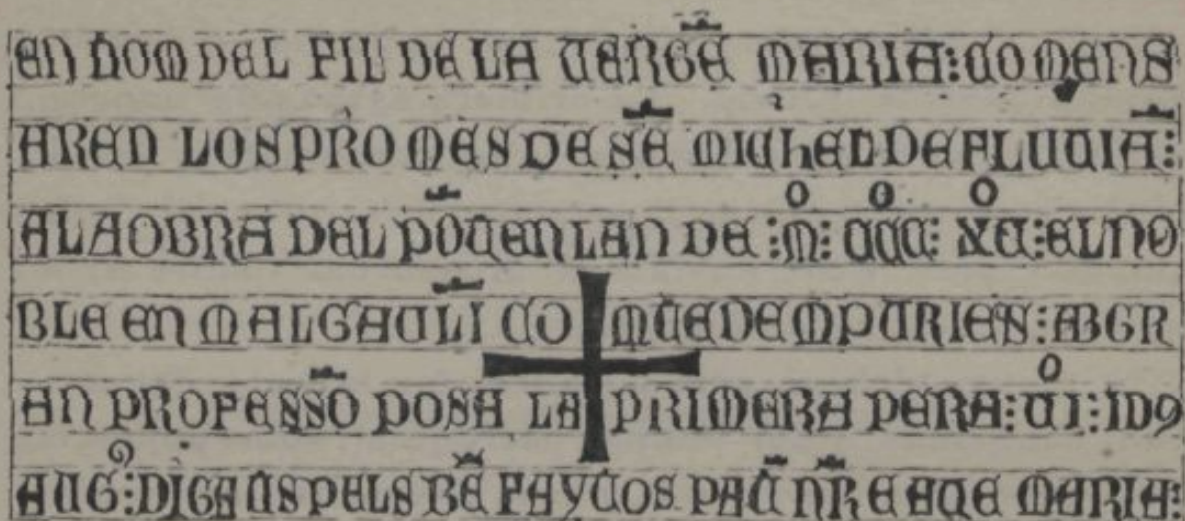 EN NOM DEL FIL DE LA VERGE MARIA:COMENS
AREN LOS PROMES DE SE MICHEL DE FLUVIA:
A LA OBRA DEL POT EN LAN DE :M: CCC: XV: EL NO
BLE EN MALGAULI COMTE DEMPURIES: AB GR
AN PROFESSO POSA LA PRIMERA PERA: VI: ID9
AUG: DIGAUS PELS BE FAYTOS PAT NRE AVE MARIA: